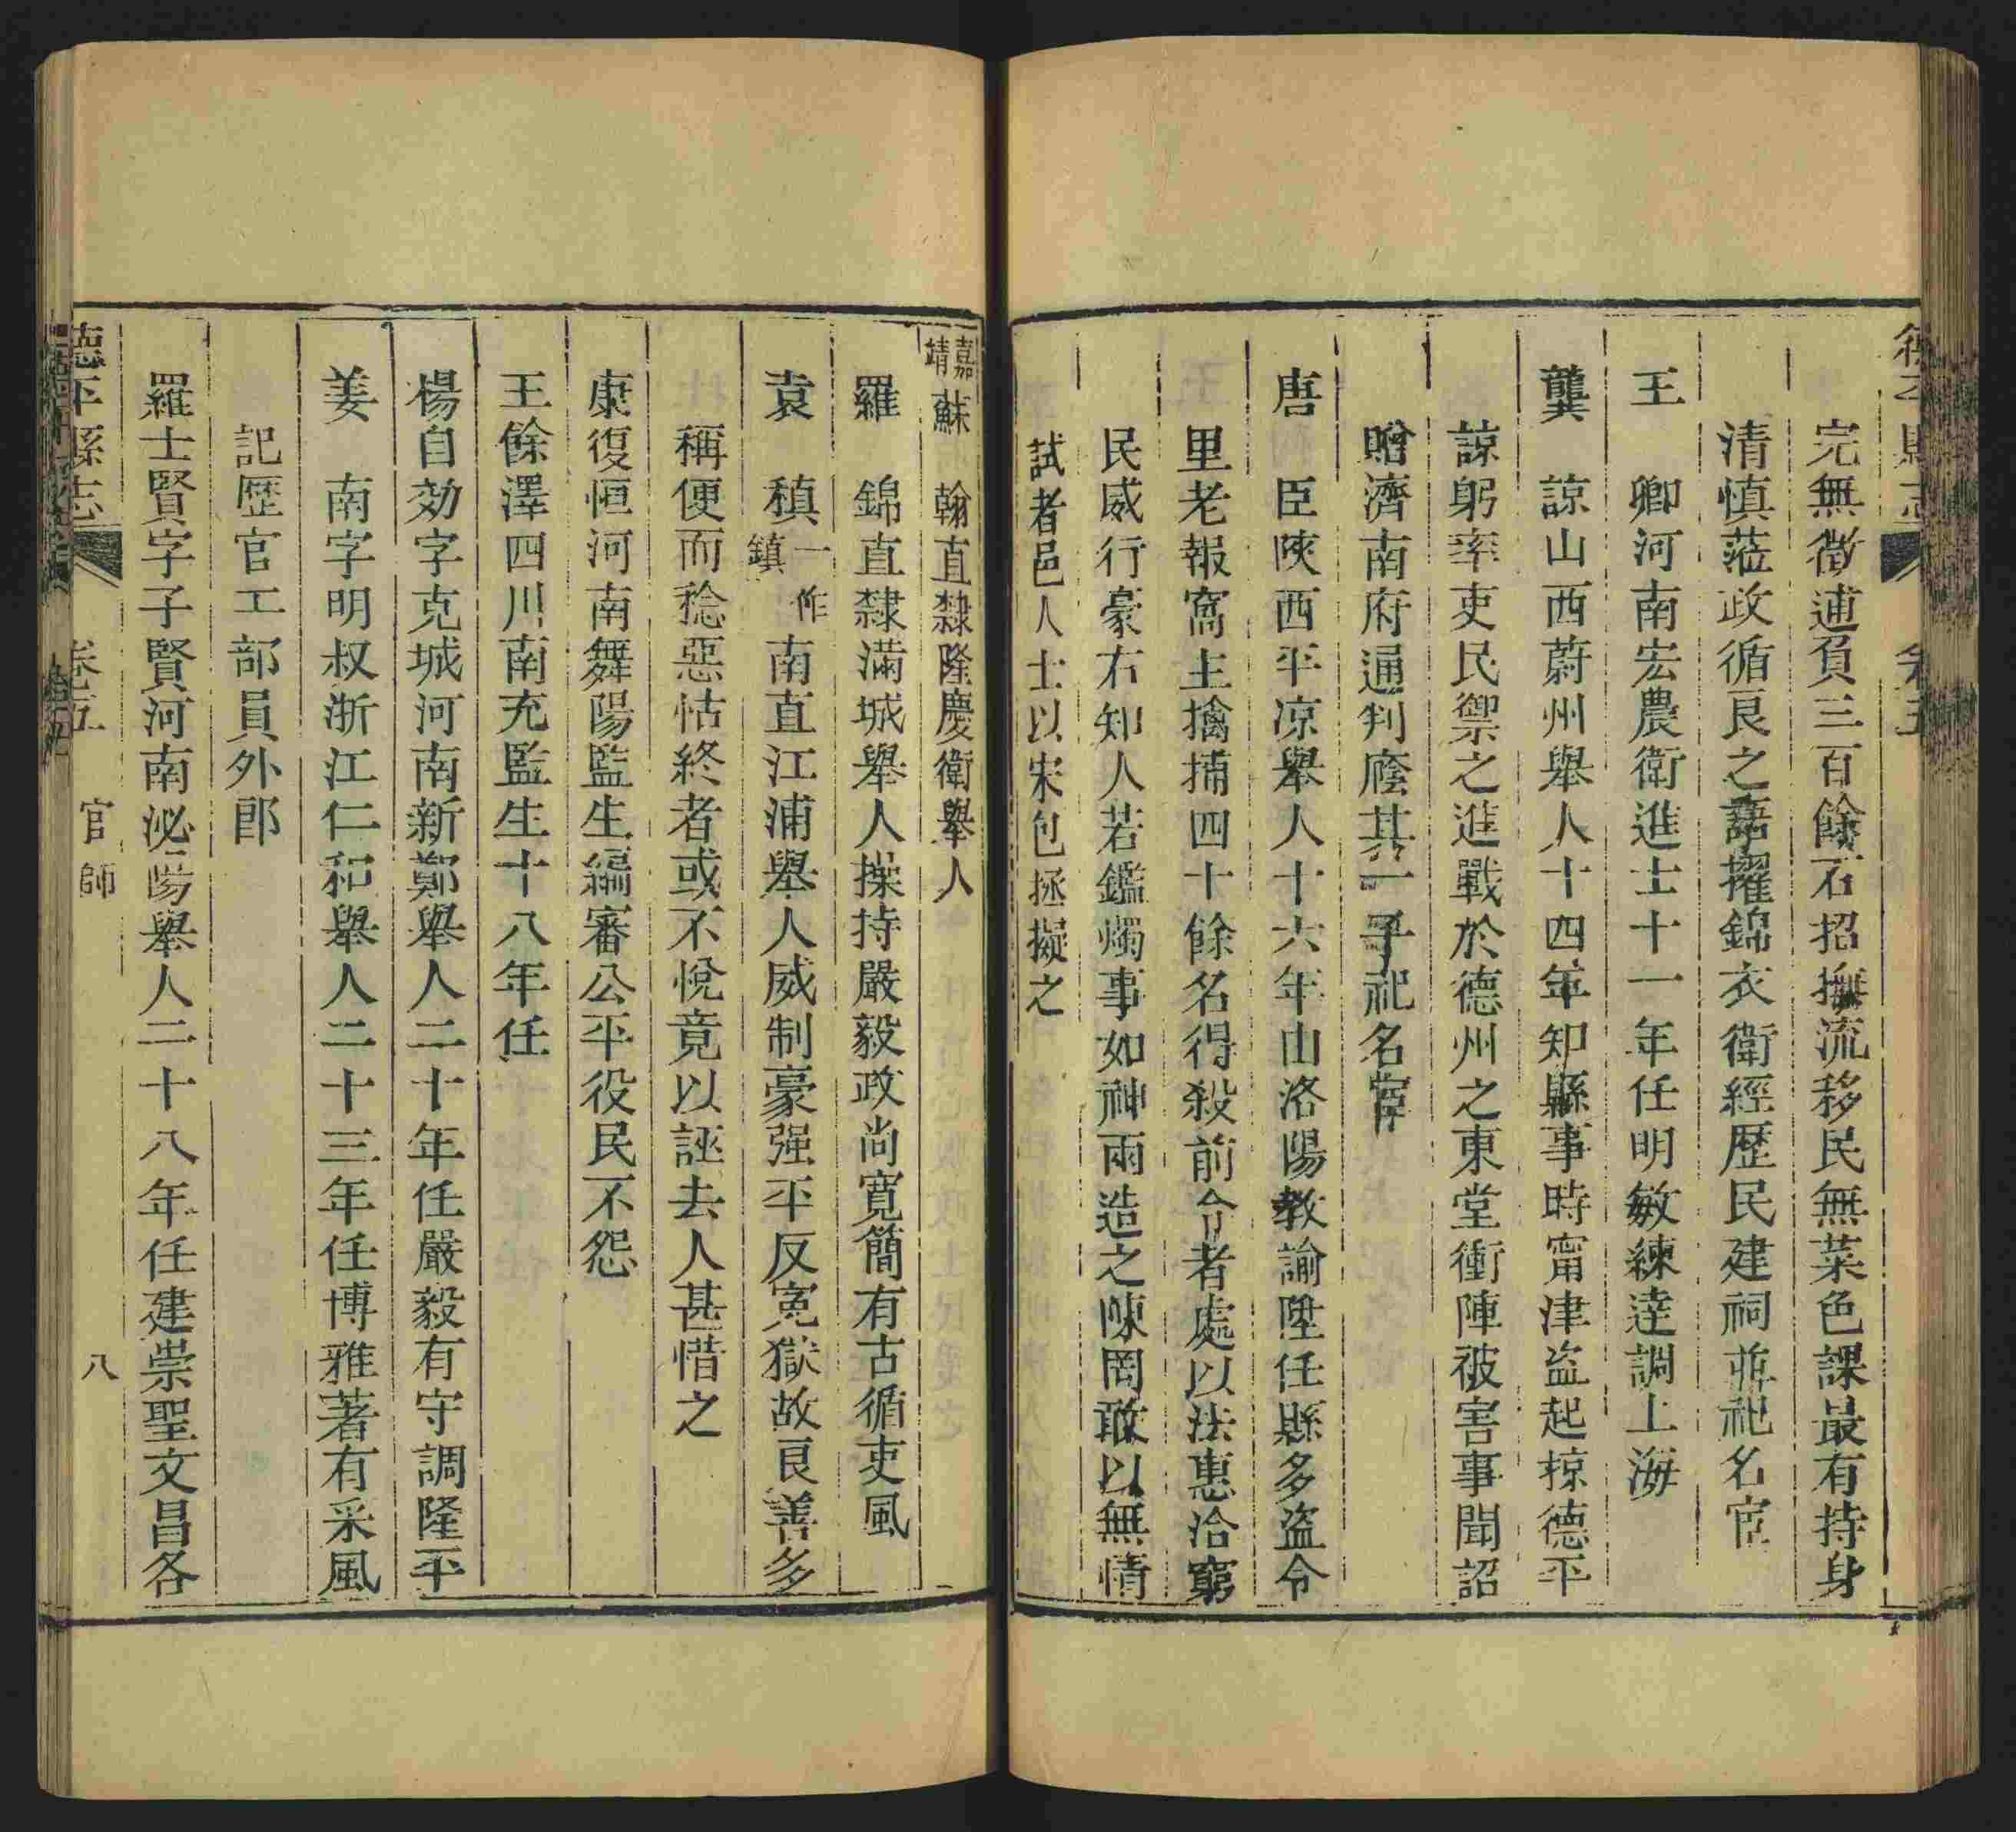 德平縣志
卷五
完無徵逋負三百餘石招撫流移民無菜色課最有持身
清慎蒞政循良之語擢錦衣衛經歷民建祠並祀名宦
王　卿河南宏農衛進士十一年任明敏練達調上海
龔　諒山西蔚州舉人十四年知縣事時甯津盜起掠德平
諒躬率吏民禦之進戰於德州之東堂衝陣被害事聞詔
贈濟南府通判廕其一子祀名宦
唐　臣陝西平凉舉人十六年由洛陽教諭陞任縣多盜令
里老報窩主擒捕四十餘名得殺前令者處以法惠洽窮
民威行豪右知人若鑑燭事如神兩造之陳罔敢以無情
試者邑人士以宋包拯擬之
嘉靖蘇　翰直隸隆慶衛舉人
羅　錦直隸滿城舉人操持嚴毅政尚寬簡有古循吏風
袁　稹一作鎮南直江浦舉人威制豪强平反寃獄故良善多
稱便而稔惡怙終者或不悅竟以誣去人甚惜之
康復恒河南舞陽監生編審公平役民不怨
王餘澤四川南充監生十八年任
楊自効字克城河南新鄭舉人二十年任嚴毅有守調隆平
姜　南字明叔浙江仁和舉人二十三年任博雅著有采風
記歷官工部員外郎
羅士賢字子賢河南泌陽舉人二十八年任建崇聖文昌各
德平縣志
卷五
官師
八